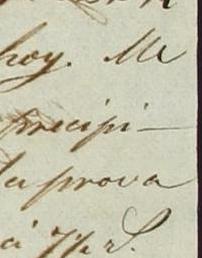 hoy. Me
precipi-
la prova
á V. S.